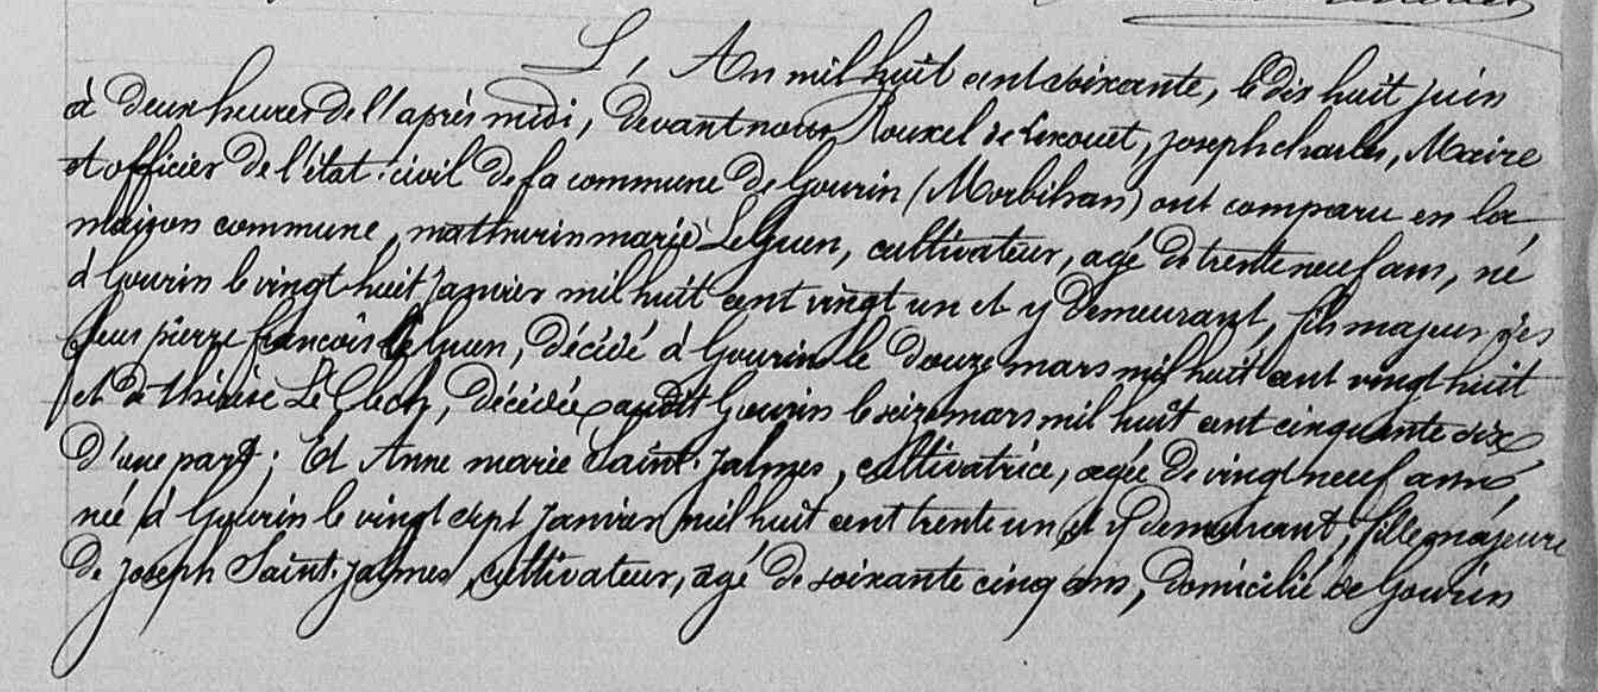 L'An mil huit cent soixante, le dix huit juin
à deux heures de l'après midi, devant nous Rouxel de Lescouët, joseph charles, Maire
et officier de l'état-civil de la commune de Gourin (Morbihan) ont comparu en la
maison commune, mathurin marie Le Guen, cultivateur, agé de trente neuf ans, né
à Gourin le vingt huit janvier mil huit cent vingt un et y demeurant, fils majeur des
feus pierre françois Le Guen, décédé à Gourin le douze mars mil huit cent vingt huit
et de thérèse Le Clech, décédée audit Gourin le seize mars mil huit cent cinquante six
d'une part; Et Anne marie Saint-jalmes, cultivatrice, agée de vingt neuf ans,
née à Gourin le vingt sept janvier mil huit cent trente un et y demeurant, fille majeure
de joseph Saint-jalmes, cultivateur, agé de soixante cinq ans, domicilié de Gourin